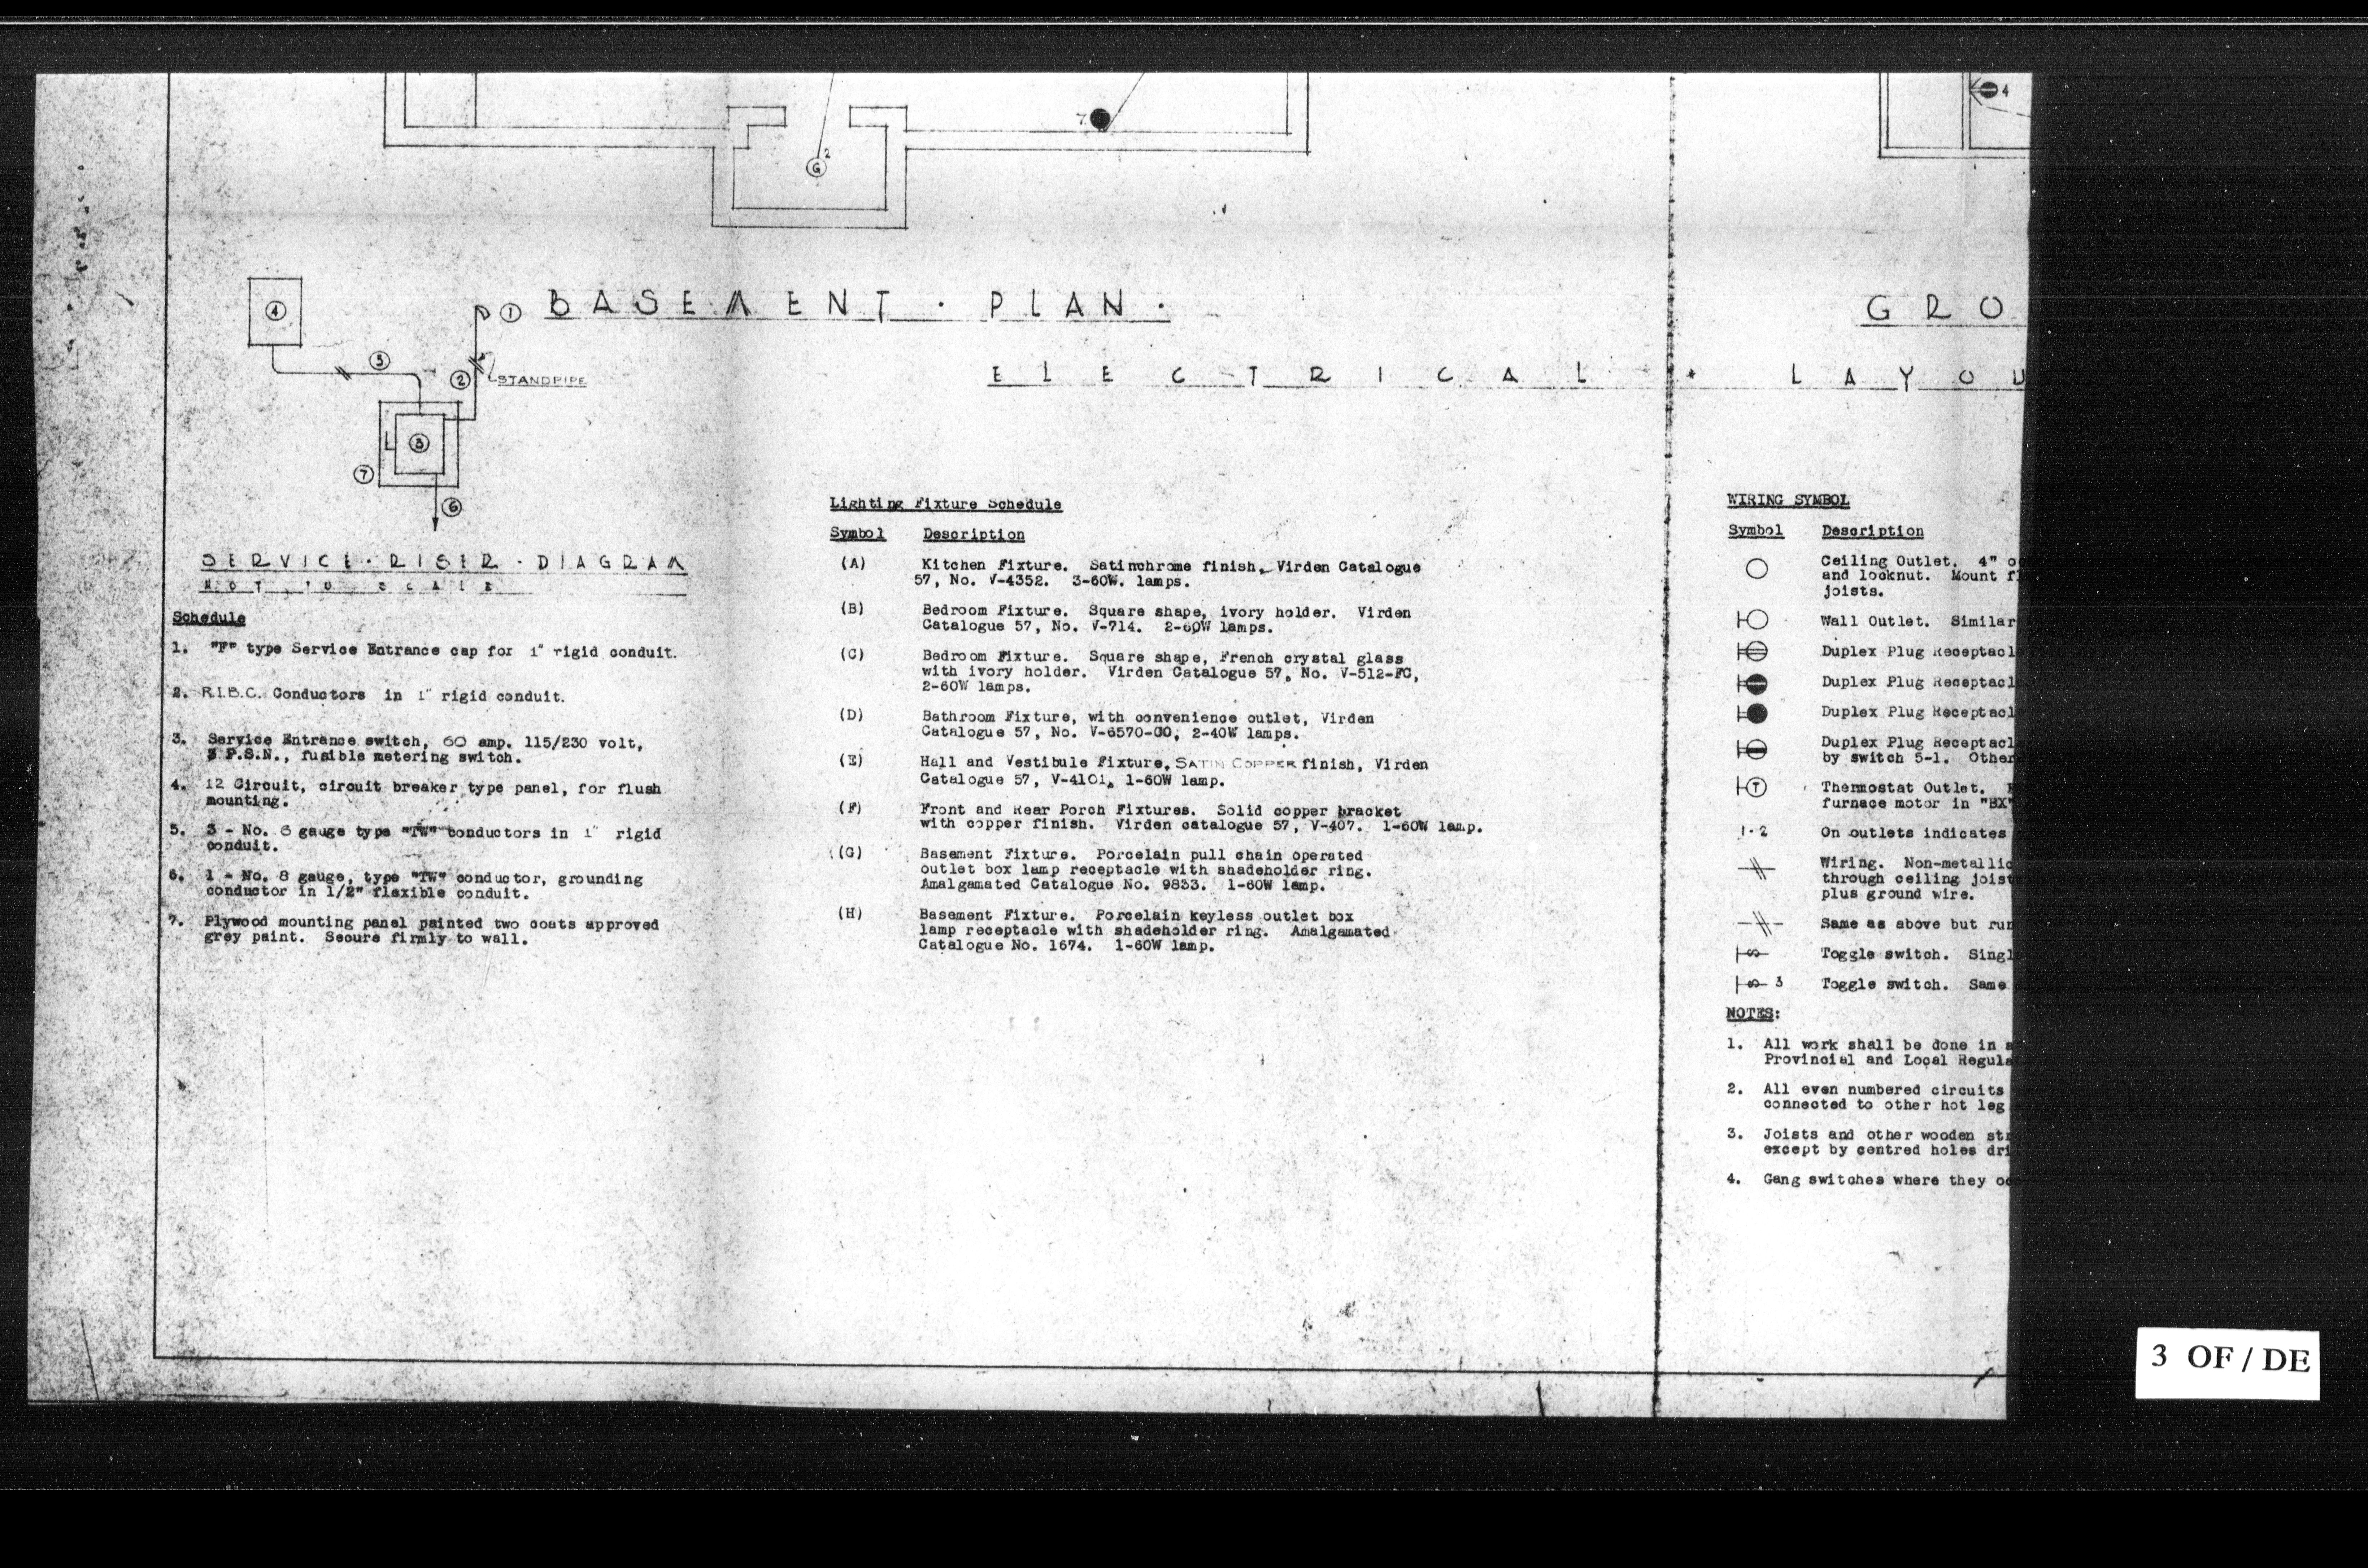 4
7.
G 2
BASEMENT · PLAN ·
GRO
ELECTRICAL · LAYOU
4
1
5
2
STANDPIPE
3
7
6
SERVICE · RISER · DIAGRAM
NOT TO SCALE
Schedule
1. "F" type Service Entrance cap for 1" rigid conduit.
2. R.I.B.C. Conductors in 1" rigid conduit.
3. Service Entrance switch, 60 amp. 115/230 volt,
3 P.S.N., fusible metering switch.
4. 12 Circuit, circuit breaker type panel, for flush
mounting.
5. 3 - No. 6 gauge type "TW" conductors in 1" rigid
conduit.
6. 1 - No. 8 gauge, type "TW" conductor, grounding
conductor in 1/2" flexible conduit.
7. Plywood mounting panel painted two coats approved
grey paint. Secure firmly to wall.
Lighting Fixture Schedule
Symbol Description
(A) Kitchen Fixture. Satinchrome finish, Virden Catalogue
57, No. V-4352. 3-60W. lamps.
(B) Bedroom Fixture. Square shape, ivory holder. Virden
Catalogue 57, No. V-714. 2-60W lamps.
(C) Bedroom Fixture. Square shape, French crystal glass
with ivory holder. Virden Catalogue 57, No. V-512-FC,
2-60W lamps.
(D) Bathroom Fixture, with convenience outlet, Virden
Catalogue 57, No. V-6570-CO, 2-40W lamps.
(E) Hall and Vestibule Fixture, SATIN COPPER finish, Virden
Catalogue 57, V-4101, 1-60W lamp.
(F) Front and Rear Porch Fixtures. Solid copper bracket
with copper finish. Virden catalogue 57, V-407. 1-60W lamp.
(G) Basement Fixture. Porcelain pull chain operated
outlet box lamp receptacle with shadeholder ring.
Amalgamated Catalogue No. 9833. 1-60W lamp.
(H) Basement Fixture. Porcelain keyless outlet box
lamp receptacle with shadeholder ring. Amalgamated
Catalogue No. 1674. 1-60W lamp.
WIRING SYMBOL
Symbol Description
Ceiling Outlet. 4" o
and locknut. Mount fl
joists.
Wall Outlet. Similar
Duplex Plug Receptacl
Duplex Plug Receptacl
Duplex Plug Receptacl
Duplex Plug Receptacl
by switch 5-1. Other
T Thermostat Outlet.
furnace motor in "BX"
1·2 On outlets indicates
Wiring. Non-metallic
through ceiling joist
plus ground wire.
Same as above but run
S Toggle switch. Singl
S 3 Toggle switch. Same
NOTES:
1. All work shall be done in a
Provincial and Local Regula
2. All even numbered circuits
connected to other hot leg
3. Joists and other wooden str
except by centred holes dri
4. Gang switches where they oc
3 OF / DE